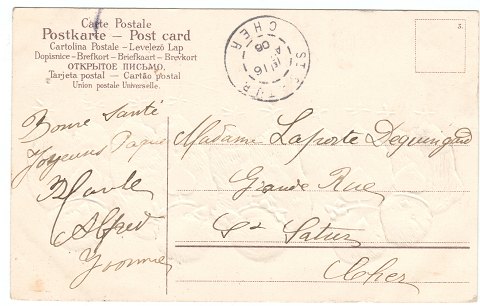 Carte Postale
Postkarte — Post card
Cartolina Postale — Levelező Lap
Dopisnice — Brefkort — Briefkaart — Brevkort
ОТКРЫТОЕ ПИСЬМО.
Tarjeta postal — Cartão postal
Union postale Universelle.
CHER
16
08
5.
Bonne Santé
Joyeuses Paques
Alfred
Yvonne
Madame Laporte Deguingand
Grande Rue
St Satur
Cher